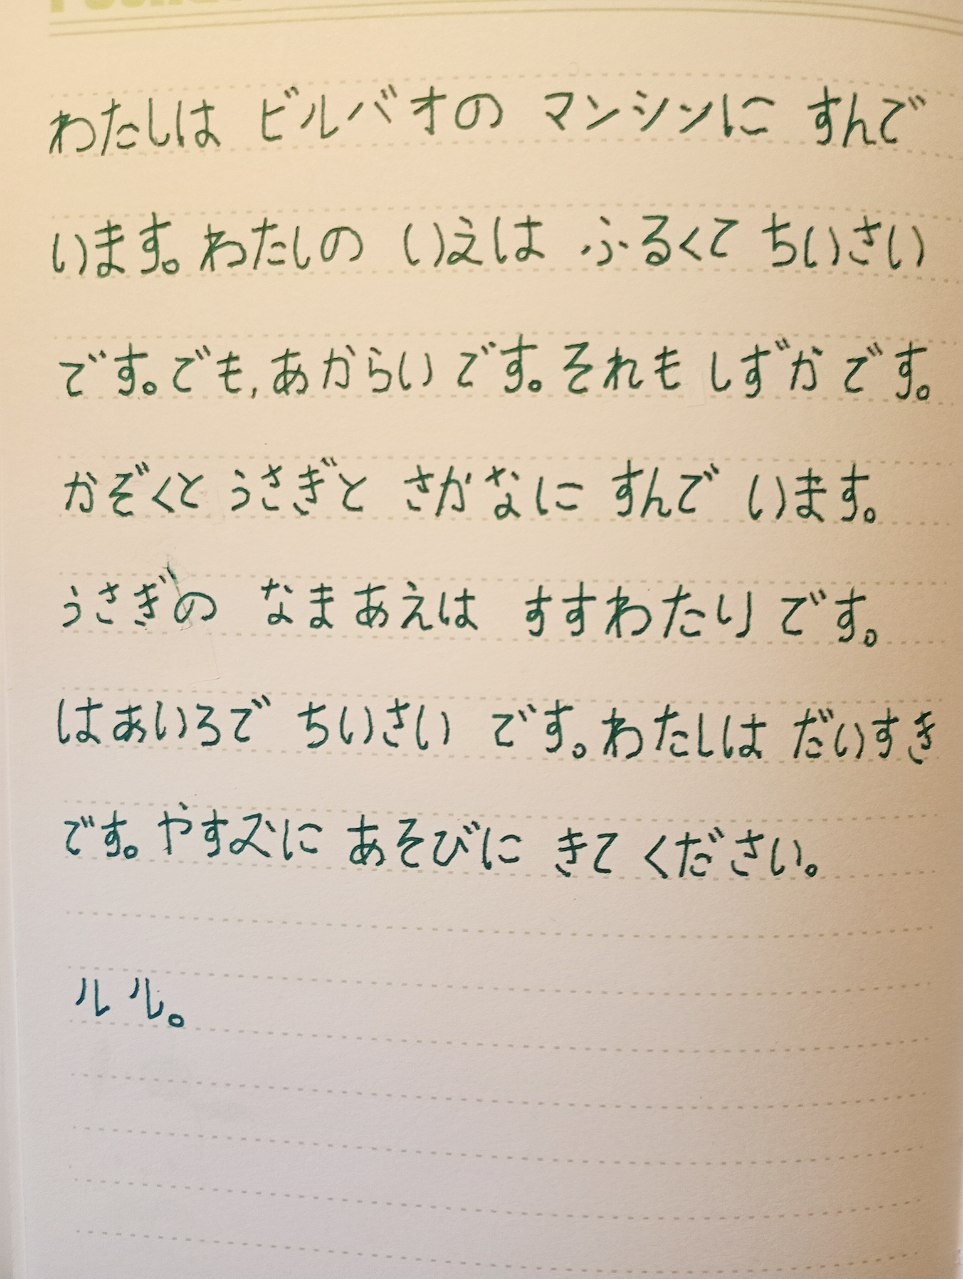 わたしは ビルバオの マンシンに すんで
います。わたしの いえは ふるくて ちいさい
です。でも, あからい です。それも しずか です。
かぞくと うさぎと さかなに すんで います。
うさぎの なまあえは すすわたり です。
はぁいろで ちいさい です。わたしは だいすき
です。やすズに あそびに きて ください。
ルル。